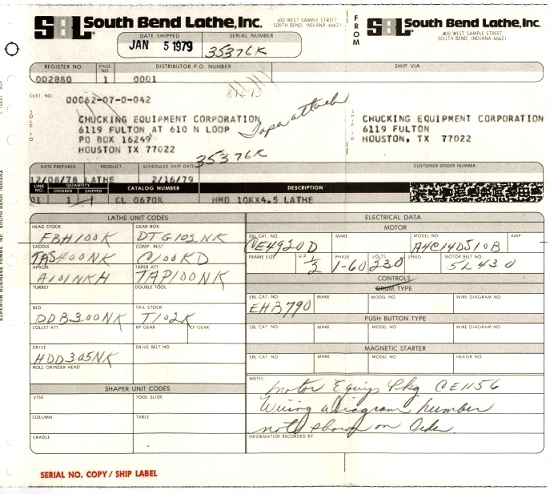 SBL South Bend Lathe, Inc.
400 WEST SAMPLE STREET
SOUTH BEND, INDIANA 46621
DATE SHIPPED
JAN 5 1979
SERIAL NUMBER
35376K
FROM
SBL South Bend Lathe, Inc.
400 WEST SAMPLE STREET
SOUTH BEND, INDIANA 46621
REGISTER NO.
002880
PAGE NO.
1
DISTRIBUTOR P.O. NUMBER
0001
SHIP VIA
CUST. NO.
00062-07-0-042
CHUCKING EQUIPMENT CORPORATION
6119 FULTON AT 610 N LOOP
PO BOX 16249
HOUSTON TX 77022
Tapa attach
35376K
CHUCKING EQUIPMENT CORPORATION
6119 FULTON
HOUSTON, TX 77022
DATE PREPARED
12/08/78
PRODUCT
LATHE
SCHEDULED SHIP DATE
2/16/79
CUSTOMER ORDER NUMBER
LINE NO.
QUANTITY
ORDERED
SHIPPED
CATALOG NUMBER
DESCRIPTION
01 1 1 CL 0670R HMD 10KX4.5 LATHE
LATHE UNIT CODES
HEAD STOCK
FBH100K
GEAR BOX
DTG102NK
SADDLE
TAS400NK
COMP. REST
C100KD
APRON
A101NKH
TAPER ATT
TAP100NK
TURRET
DOUBLE TOOL
BED
DDB300NK
TAIL STOCK
T102K
COLLET ATT.
RP GEAR
CF GEAR
DRIVE
HDD305NK
DRIVE BELT NO.
ROLL GRINDER HEAD
SHAPER UNIT CODES
VISE
TOOL SLIDE
COLUMN
TABLE
CRADLE
ELECTRICAL DATA
MOTOR
SBL CAT. NO.
CE4920D
MAKE
MODEL NO
A4C14D510B
AMP
FRAME SIZE
H.P.
1/2
PHASE
1-60
VOLTS
230
SPEED
MOTOR BELT NO.
5L430
CONTROLS
DRUM TYPE
SBL CAT NO.
EHB790
MAKE
MODEL NO.
WIRE DIAGRAM NO.
PUSH BUTTON TYPE
SBL CAT. NO.
MAKE
MODEL NO
WIRE DIAGRAM NO
MAGNETIC STARTER
SBL CAT. NO.
MAKE
MODEL NO
HEATER NO
NOTES
Motor Equip Pkg CE1156
Wiring diagram number
not shown on Order.
INFORMATION RECORDED BY
SERIAL NO. COPY / SHIP LABEL